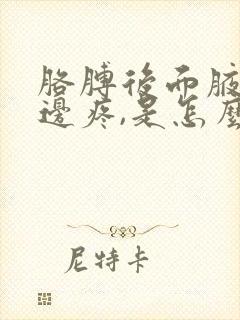 胳膊後而腋
邊疼,是怎麼
尼特卡